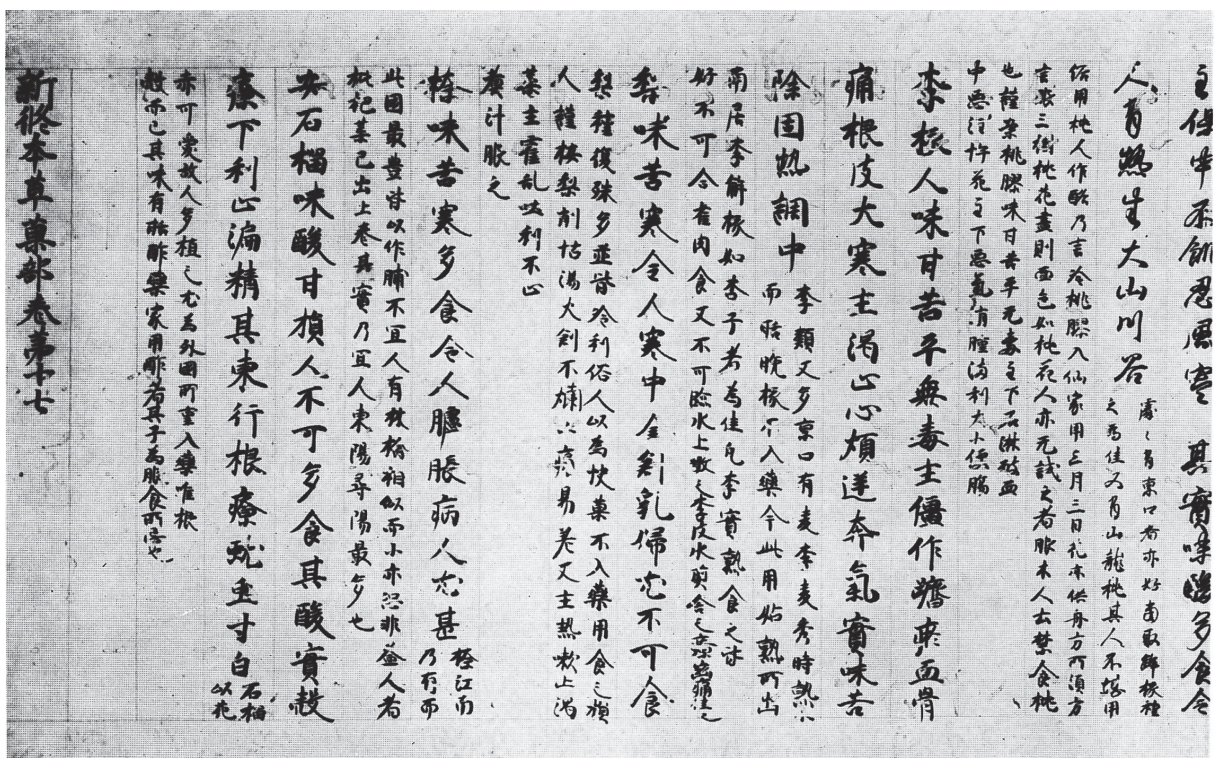 主保中不飢忍風寒　其實味酸多食令
人有熱生大山川谷
處〻有東口者亦好南取解核種
之為佳又有山龍桃其人不堪用
俗用桃人作酪乃言冷桃膠入仙家用三月三日花亦供丹方所須方
言服三樹桃花盡則面色如桃花人亦无試之者服朮人云禁食桃
也謹案桃膠味甘苦平无毒主下石淋破血
中惡注忤花主下惡氣有腫滿利大小便腸
李核人味甘苦平無毒主僵作瘀血骨
痛根皮大寒主渴止心煩逆奔氣實味苦
除固熱調中
李類又多京口有麦李麦秀時熟小
而甜脆核不入藥今此用姑熟所出
南居李解核如杏子者為佳凡李實熟食之
好不可合雀肉食又不可臨水上噉之李皮水煎含之
梨味苦寒令人寒中金創乳婦尤不可食
梨種復殊多並皆冷利俗人以為快菓不入藥用食之損
人謹按梨削帖湯火創不爛止痛易差又主熱嗽止渴
葉主霍乱吐利不止
煮汁服之
柰味苦寒多食令人臚脹病人尤甚
江南
乃有而
此國最豊皆以作脯不宜人有林檎相似而小亦恐非益人者
枇杷葉已出上卷其實乃宜人東陽尋陽最多也
安石榴味酸甘損人不可多食其酸實殼
療下利止漏精其東行根療蚘虫寸白
石榴
以花
赤可愛故人多植之尤為外國所重入藥唯根
殼而已其味有甜酢藥家用酢者其子為服食所忌也
新修本草菓部卷第十七